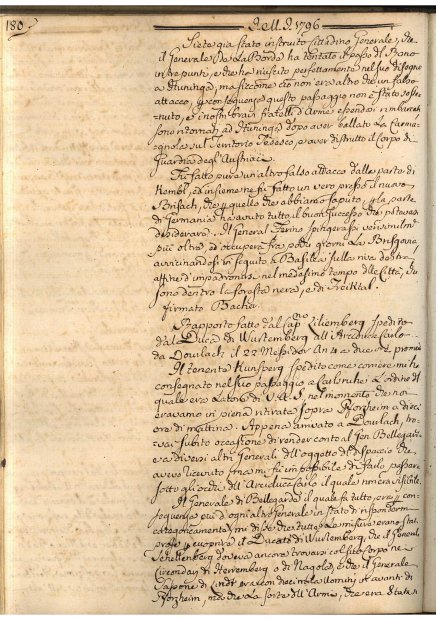 180
I.M.I. 1796
Siete già stato instruito Cittadino Generale, che
il Generale De La Borde ha tentato il passo del Reno
in tre punti, e che ha riuscito perfettamente nel suo disegno
a Huninga, ma siccome ciò non era altro che un falso
attacco, per conseguenza questo passaggio non è stato soste-
nuto, e i nostri bravi fratelli d'Armi essendosi rimbarcati
sono ritornati ad Huninga dopo aver ballato la Carma-
gnola sul Territorio Tedesco, e aver distrutto il Corpo di
Guardia degl'Austriaci.
Fu fatto pure un altro falso attacco dalla parte di
Kembs, ed insieme ne fu fatto un vero presso il nuovo
Brisach, che per quello che abbiamo saputo, per la parte
di Germania ha avuto tutto il buon successo che si poteva
desiderare. Il General Ferino spingerassi verisimilm.
più oltre, ed occuperà fra pochi giorni la Brisgovia
avvicinandosi in seguito a Basilea sulla riva destra
affine d'impadronirsi nel medesimo tempo delle Città, che
sono dentro la foresta nera, e di Fricktal.
firmato Bacher.
Rapporto fatto dal Cap.no Lilemberg spedito
dal Duca di Wurtemberg all'Arciduca Carlo
da Dourlach, il 22 Messidor An. 4 a due ore pomerid.
Il tenente Kunsperg spedito come corriere mi ha
consegnato nel suo passaggio a Carlsruhe l'ordine del
quale era Latore di V.A.S. nel momento che noi
eravamo in piena ritirata sopra Pforzheim a dieci
ore di mattina. Appena arrivato a Dourlach, tro-
vai subito occasione di render conto al Gen. Bellegarde
e a diversi altri Generali dell'oggetto di dispaccio che
avevo ricevuto, ma mi fu impossibile di farlo passare
sotto gli occhi dell'Arciduca Carlo il quale non era visibile.
Il Generale di Bellegarde il quale fa tutto, era per con-
sequenza più d'ogni altro Generale in stato di rispondermi
categoricamente, mi disse che tutte le misure erano state
prese per coprire il Ducato di Wurtemberg, che il General
Schellemberg doveva ancora trovarsi col suo Corpo ne'
Circondarj di Herrenberg o di Nagold, e che il Generale
Sapone di Lindt era con diecimila Uomini avanti di
Pforzheim, ma che la sorte dell'Armi, che era stata si